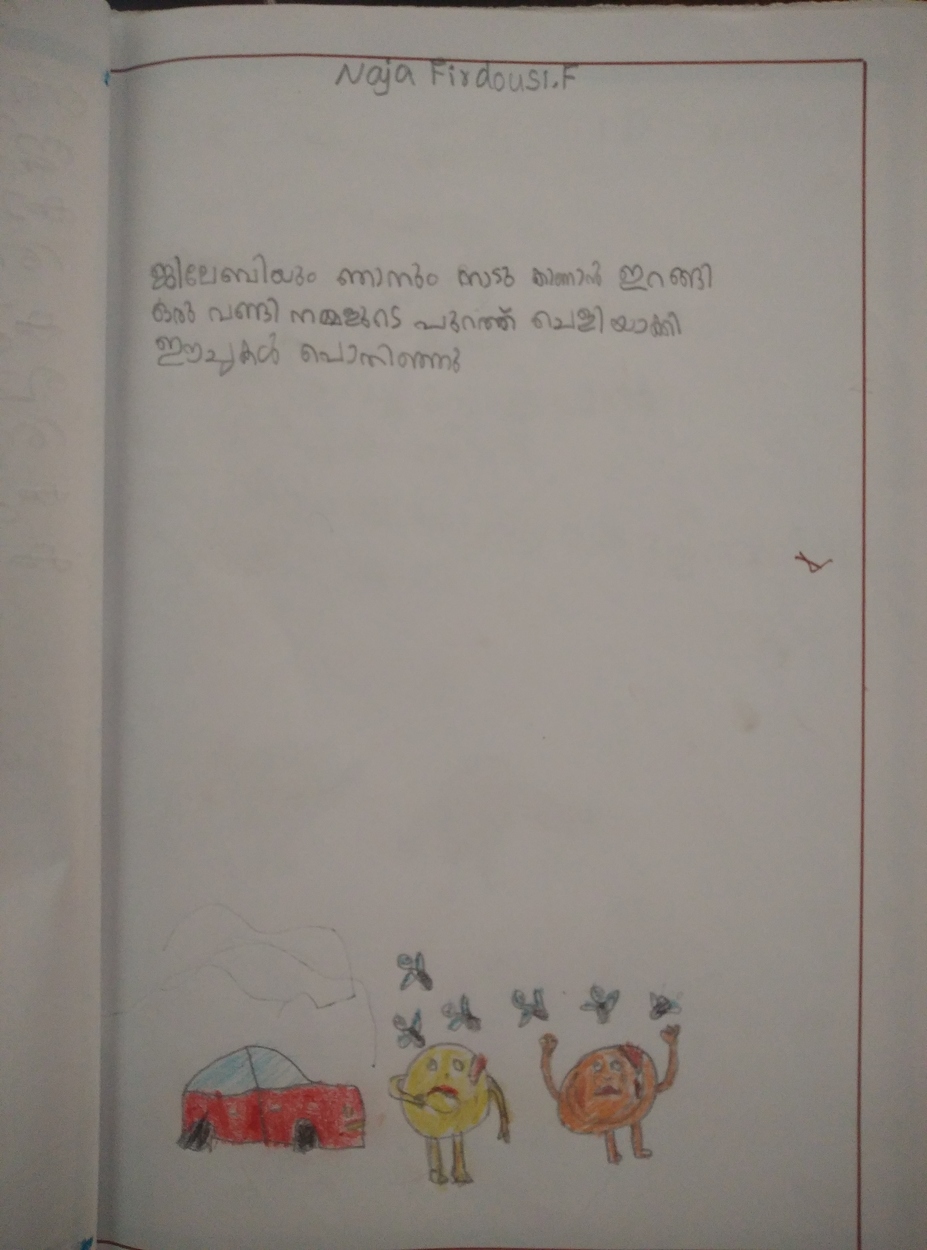 Naja Firdousi.F
ജിലേബിയും ഞാനും നാടു കാണാൻ ഇറങ്ങി
ഒരു വണ്ടി നമ്മളുടെ പുറത്ത് ചെളിയാക്കി
ഈച്ചകൾ പൊതിഞ്ഞു